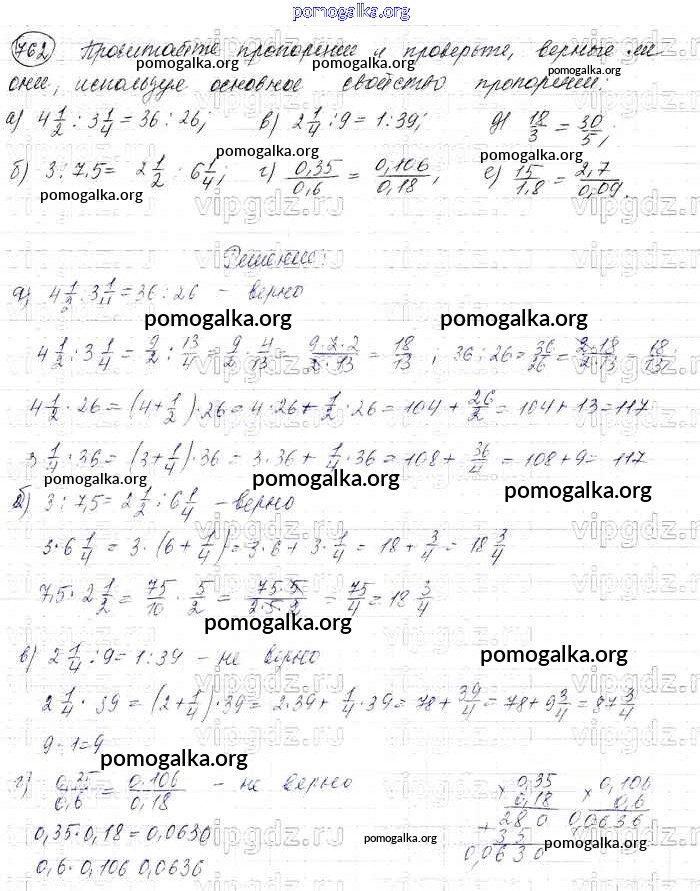 pomogalka.org
762 Прочитайте пропорции и проверьте, верные ли
они, используя основное свойство пропорции:
а) 4 1/2 : 3 1/4 = 36 : 26; в) 2 1/4 : 9 = 1 : 39; д) 18/3 = 30/5;
б) 3 : 7,5 = 2 1/2 : 6 1/4; г) 0,35/0,6 = 0,106/0,18; е) 15/1,8 = 2,7/0,09.
Решение:
а) 4 1/2 : 3 1/4 = 36 : 26 - верно
pomogalka.org pomogalka.org
4 1/2 : 3 1/4 = 9/2 : 13/4 = 9/2 · 4/13 = 9·2·2/2·13 = 18/13 ; 36 : 26 = 36/26 = 2·18/2·13 = 18/13
4 1/2 · 26 = (4 + 1/2) · 26 = 4 · 26 + 1/2 · 26 = 104 + 26/2 = 104 + 13 = 117
3 1/4 · 36 = (3 + 1/4) · 36 = 3 · 36 + 1/4 · 36 = 108 + 36/4 = 108 + 9 = 117
pomogalka.org pomogalka.org pomogalka.org
б) 3 : 7,5 = 2 1/2 : 6 1/4 - верно
3 · 6 1/4 = 3 · (6 + 1/4) = 3 · 6 + 3 · 1/4 = 18 + 3/4 = 18 3/4
7,5 · 2 1/2 = 75/10 · 5/2 = 75·5/2·5·2 = 75/4 = 18 3/4
pomogalka.org
в) 2 1/4 : 9 = 1 : 39 - не верно
pomogalka.org
2 1/4 · 39 = (2 + 1/4) · 39 = 2 · 39 + 1/4 · 39 = 78 + 39/4 = 78 + 9 3/4 = 87 3/4
9 · 1 = 9
pomogalka.org
г) 0,35/0,6 = 0,106/0,18 - не верно
0,35 · 0,18 = 0,0630
0,6 · 0,106 0,0636
× 0,35 × 0,106
0,18 0,6
280 0,0636
+ 35
0,0630
pomogalka.org pomogalka.org